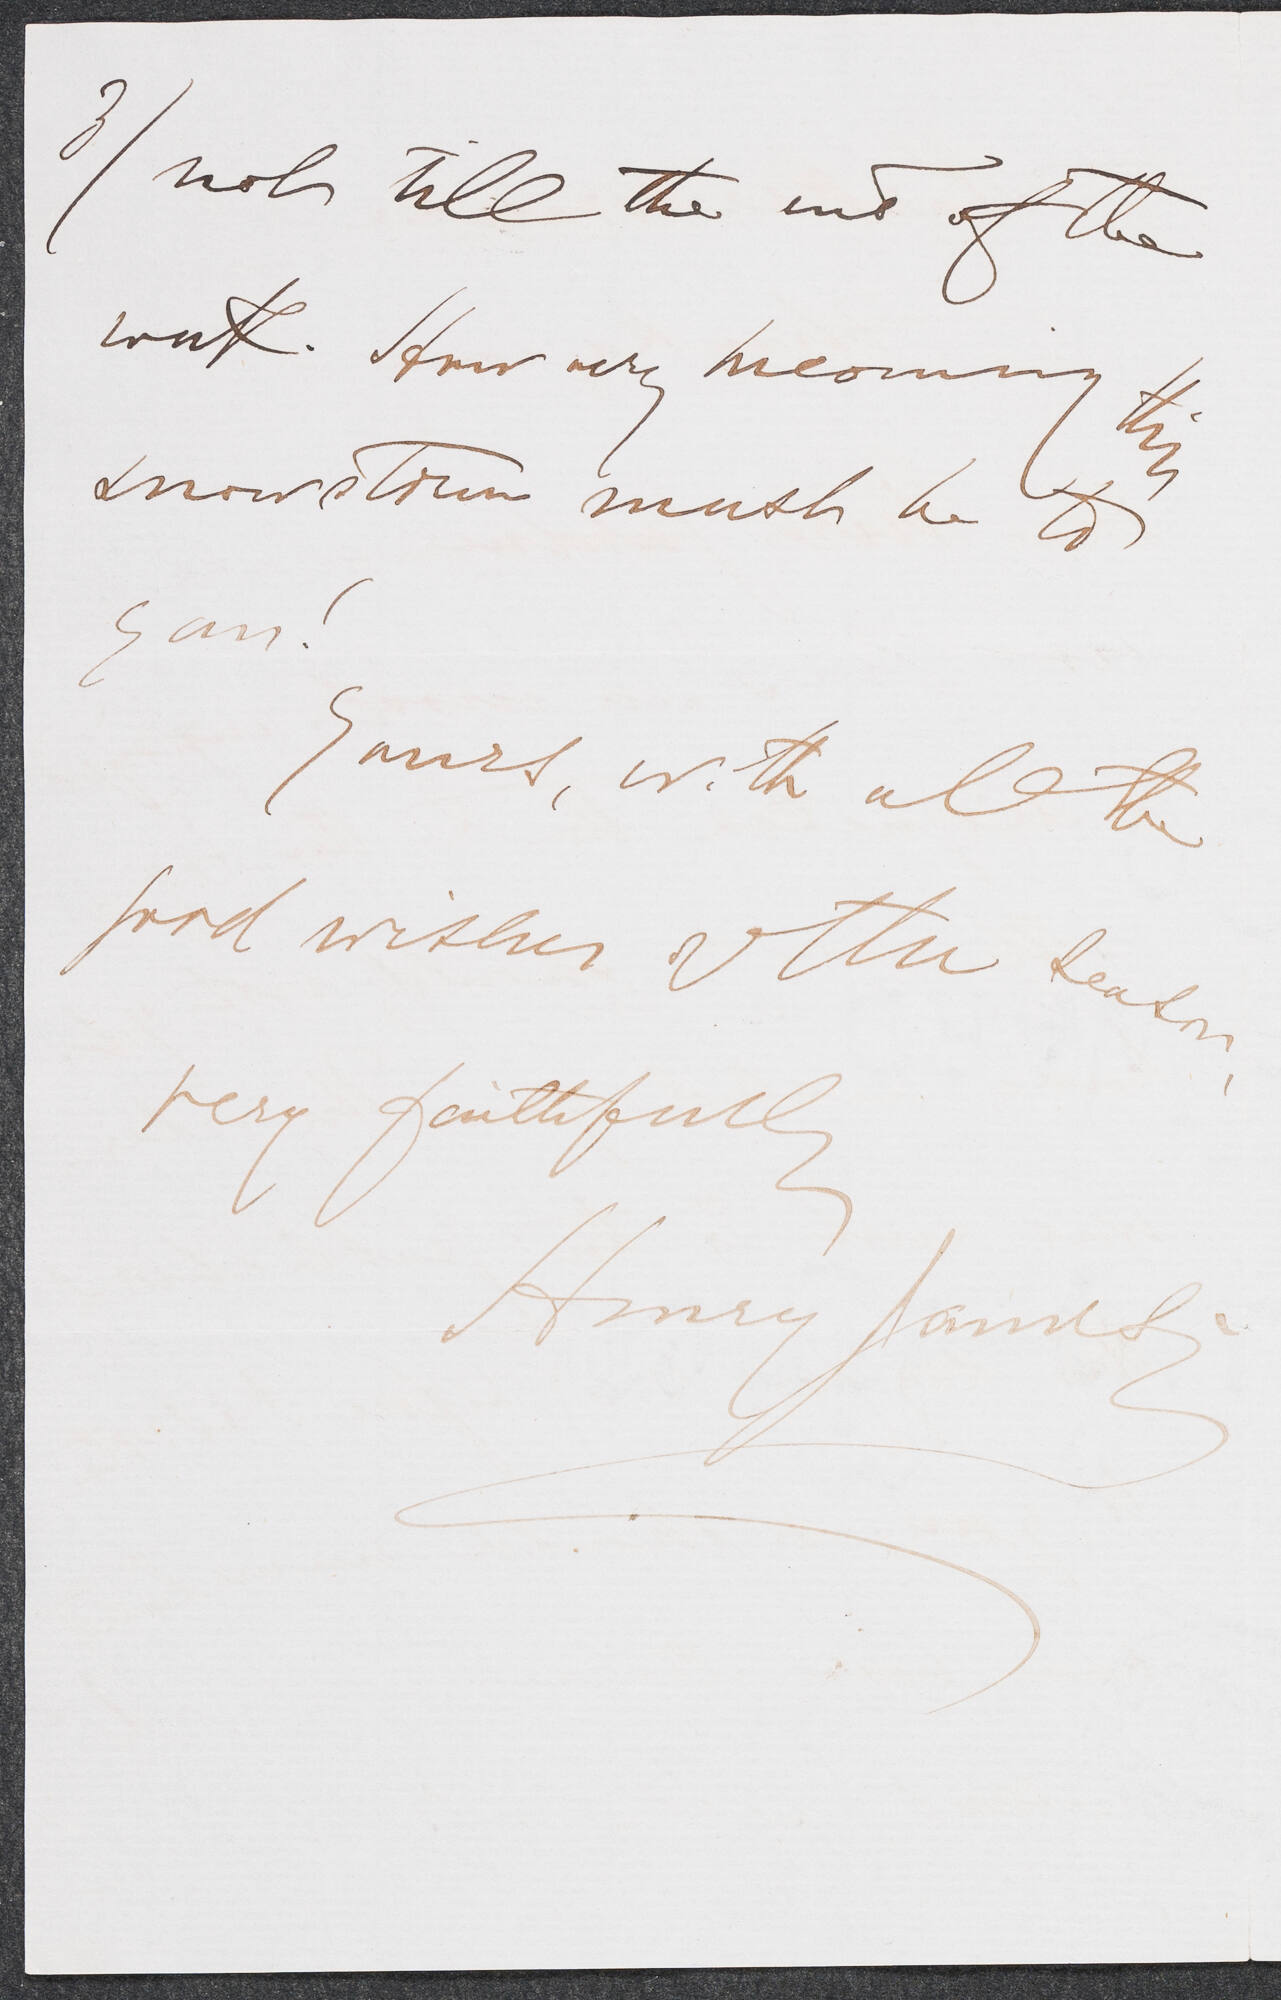 3/ not till the end of the
week. How very becoming this
snowstorm must be to
you!
Yours, with all the
good wishes of the season,
very faithfully
Henry James